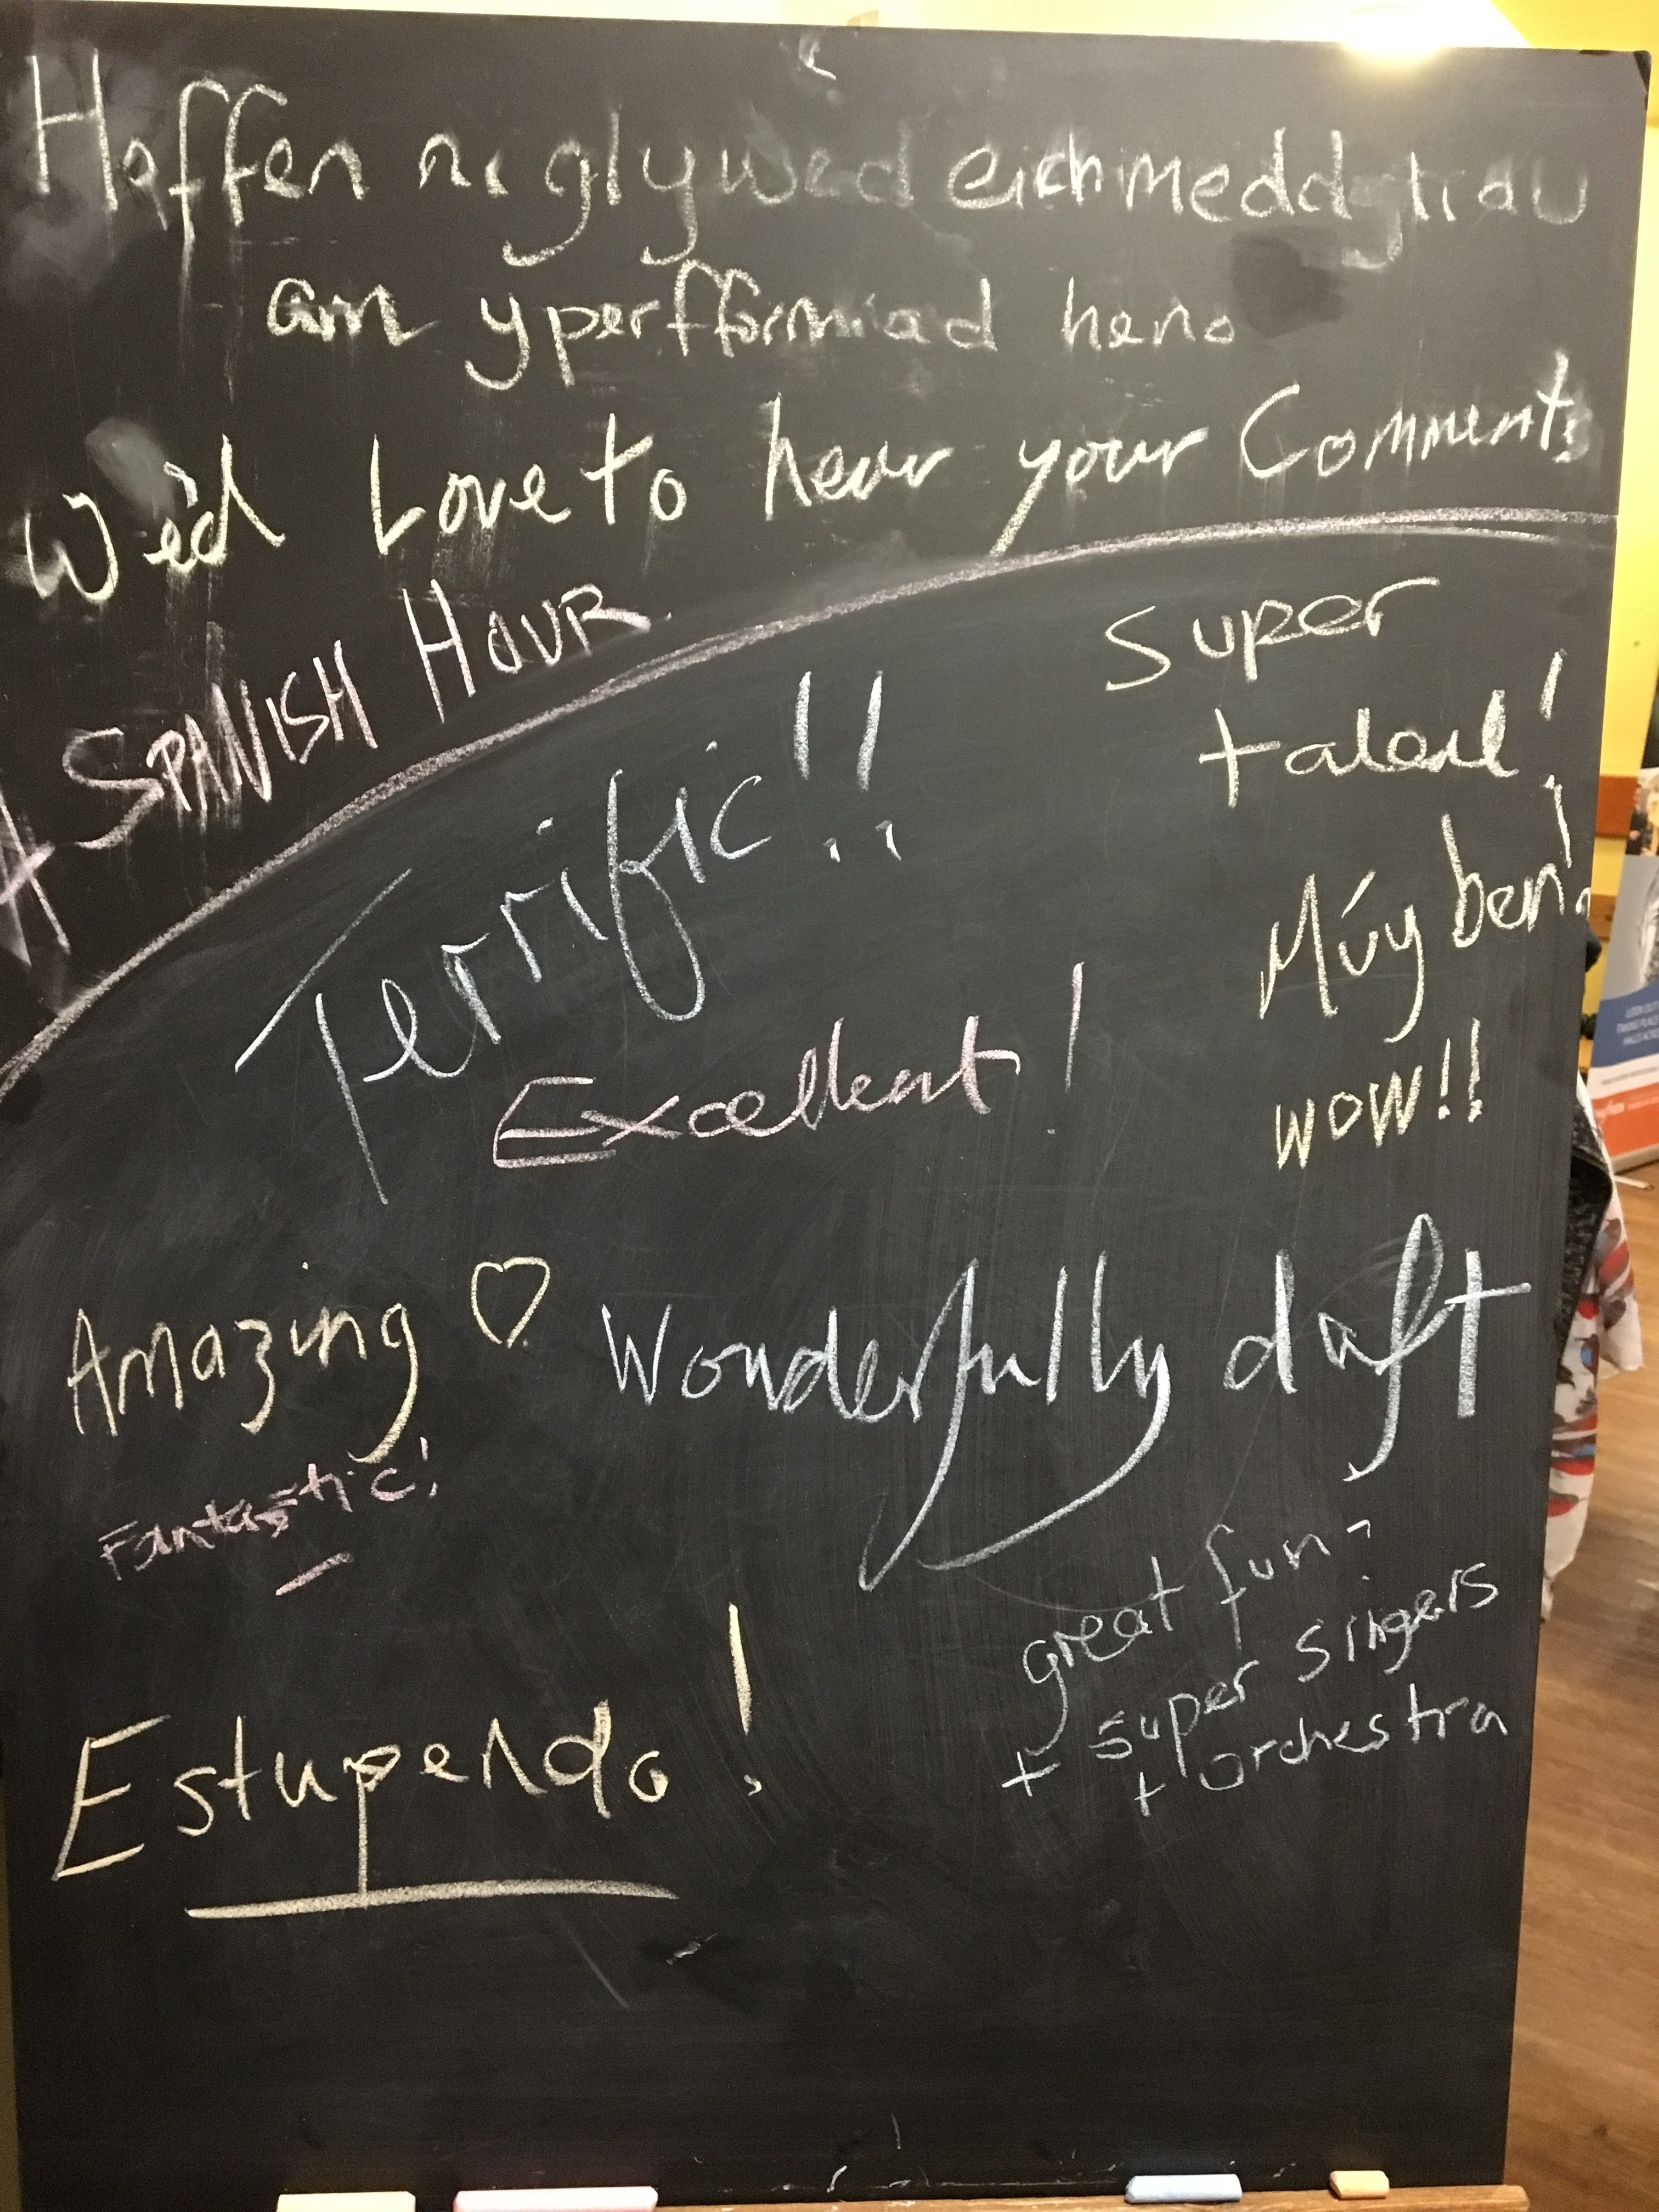 Hoffen ni glywed eich meddyliau
am y perfformiad heno
We'd Love to hear your Comments
A SPANISH HOUR
Super
talent!
Terrific!!
Múy ben!
Excellent!
WOW!!
Amazing ♡
Wonderfully daft
Fantastic!
great fun
+ super singers
+ orchestra
Estupendo!